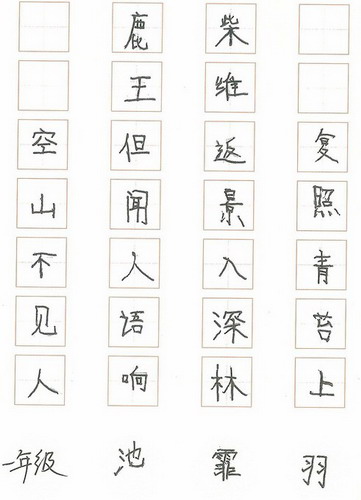 鹿柴
王维
空山不见人
但闻人语响
返景入深林
复照青苔上
一年级 池霏羽